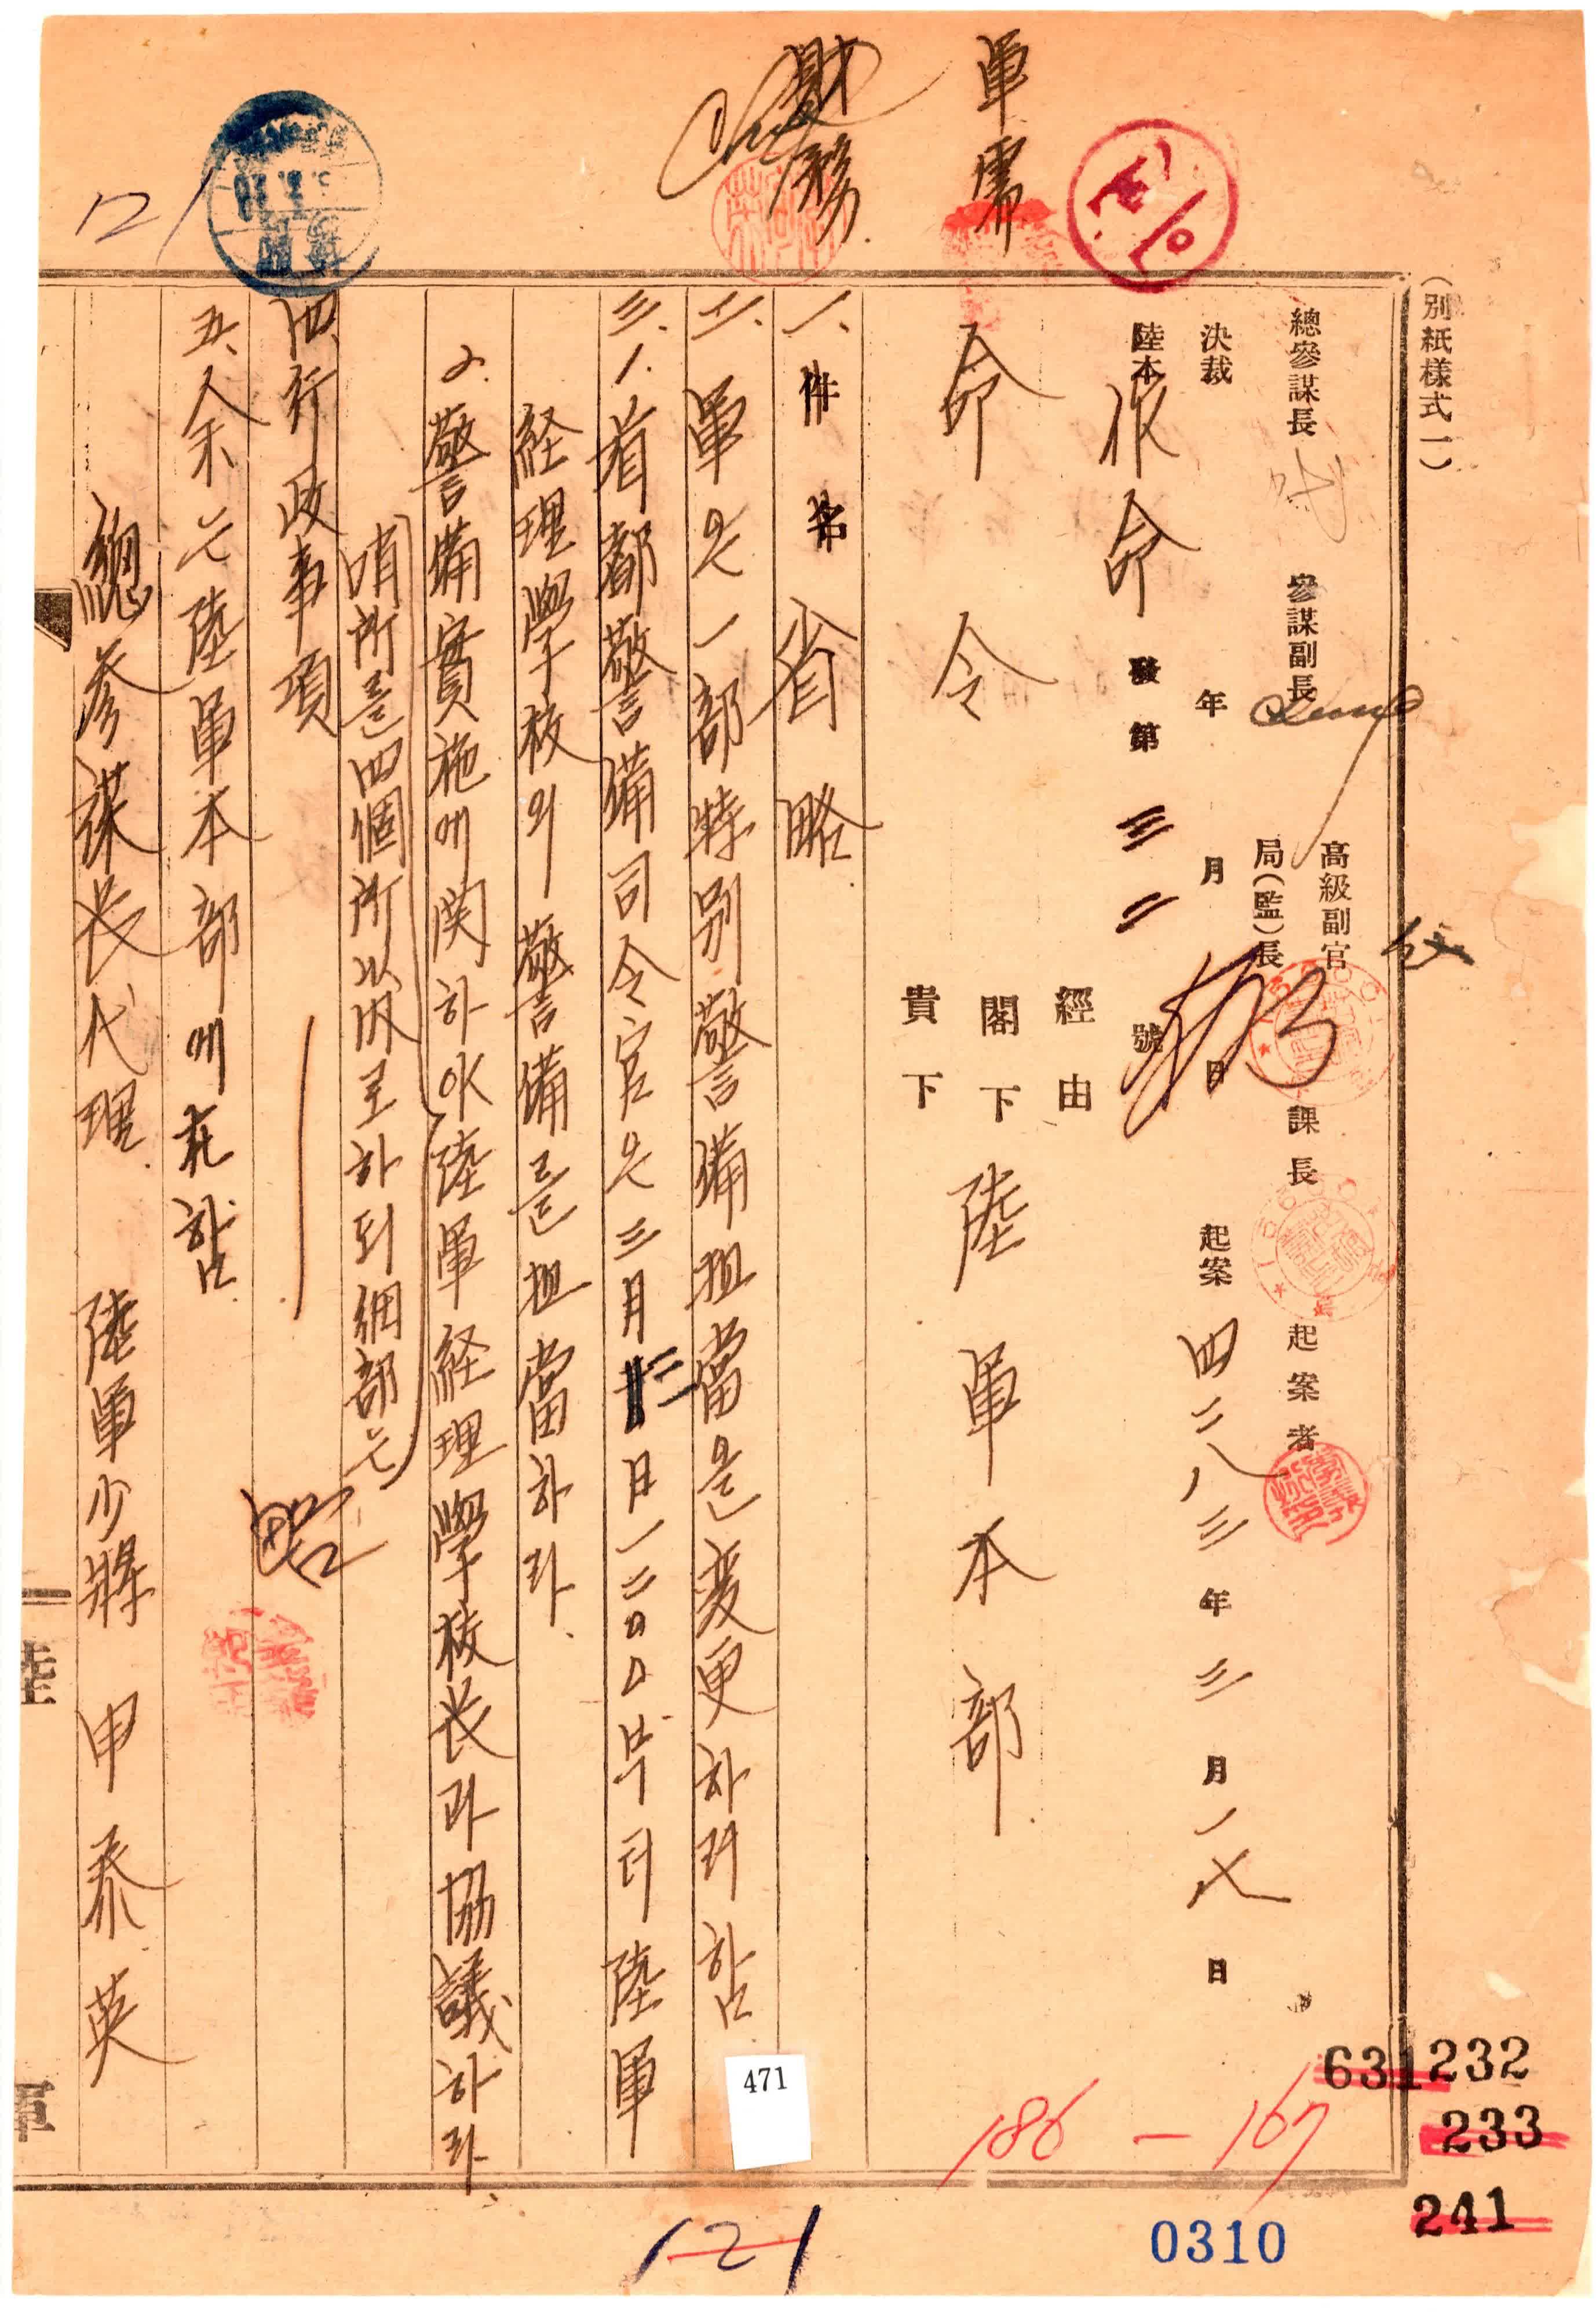 (別紙樣式一)
總參謀長 參謀副長 高級副官 局(監)長 課長 起案者
決裁 年 月 日 起案 四二八三年三月一八日
陸本 作命 發第 三二 號
經由
閣下
貴下
命令 陸軍本部
一、件名 省略
二、軍은 一部特別警備担當을 変更하려함
三、1.首都警備司令官은 三月 二日一二00부터 陸軍
経理學校의 警備를 担當하라.
2.警備實施에 関하야 陸軍経理學校长과 協議하라.
哨所를 四個所以內로 하되 細部는
四、行政事項 略
五、余는 陸軍本部에 在함.
總参謀长代理. 陸軍少將 申泰英
軍需
財務
121
陸
軍
471
186-167
631232
233
241
0310
121